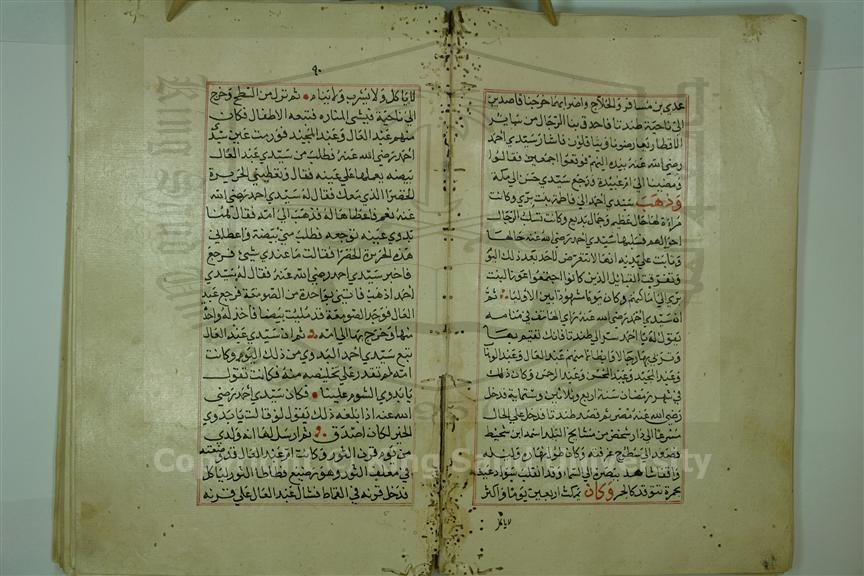 عدي بن مسافر والحلاج واضرابهما خرجنا قاصدين
الى ناحية طندتا فاحدق بنا الرجال من سائر
الاقطار يعارضونا ويثاقلونا فاشار سيدي احمد
رضي الله عنه بيده اليهم فوقعوا اجمعين فقالوا
ومضينا الى ام عبيدة ورجع سيدي حسن الى مكة
وذهب سيدي احمد الى فاطمة بنت بري وكانت
امراة لها حال عظيم وجمال بديع وكانت تسلب الرجال
احوالهم فسلبها سيدي احمد رضي الله عنه حالها
وتابت على يديه انها لا تتعرض لاحد بعد ذلك اليوم
وتفرقت القبائل الذين كانوا اجتمعوا على بنت
بري الى اماكنهم وكان يوما مشهودا بين الاولياء ثم
ان سيدي احمد رضي الله عنه راى الهاتف في منامه
يقول له يا احمد سر الى طندتا فانك تقيم بها
وتربي بها رجالا وابطالا منهم عبد العال وعبد الوهاب
وعبد المجيد وعبد المحسن وعبد الرحمن وكان ذلك
في شهر رمضان سنة اربع وثلاثين وستماية فدخل
رضي الله عنه مصر ثم قصد طندتا فدخل على الحال
مسرعا الى دار شخص من مشايخ البلد اسمه ابن شحيط
فصعد الى سطح غرفته وكان طول نهاره وليله
واقفا شاخصا ببصره الى السماء وقد انقلب سواد عينيه
بحمرة تتوقد كالجمر وكان يمكث اربعين يوما واكثر
لا ياكل
٩٠
لا ياكل ولا يشرب ولا ينام ثم نزل من السطح وخرج
الى ناحية فيشى المناره فتبعه الاطفال فكان
منهم عبد العال وعبد المجيد فورمت عين سيدي
احمد رضي الله عنه فطلب من سيدي عبد العال
بيضه يعملها على عينه فقال وتعطيني الجريدة
الخضرا الذي معك فقال له سيدي احمد رضي الله
عنه نعم فاعطاها له فذهب الى امه فقال هنا
بدوي عينه توجعه فطلب مني بيضة واعطاني
هذه الجريدة الخضرا فقالت ما عندي شيء فرجع
فاخبر سيدي احمد رضي الله عنه فقال له سيدي
احمد اذهب فاتيني بواحدة من الصومعة فرجع عبد
العال فوجد الصومعة قد ملئت بيضا فاخذ له واحدة
منها وخرج بها اليه ثم ان سيدي عبد العال
تبع سيدي احمد البدوي من ذلك اليوم وكانت
امه لم تقدر على تخليصه منه فكانت تقول
يا بدوي الشوم علينا فكان سيدي احمد رضي
الله عنه اذا بلغه ذلك يقول لو قالت يا بدوي
الخير لكان اصدق ثم ارسل لها انه ولدي
من يوم قرن الثور وكانت ام عبد العال قد وضعته
في معلف الثور وهو رضيع فطاطا الثور لياكل
فدخل قرنه في القماط فشال عبد العال على قرنه